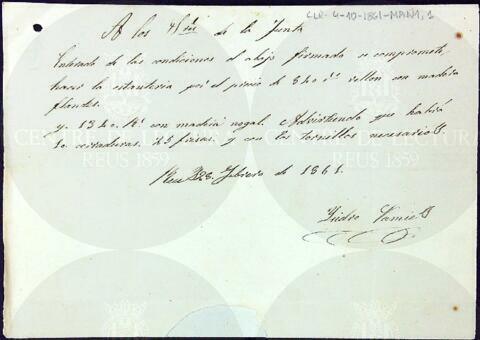 CLR-4-10-1861-MPIM1,1
A los Sres de la Junta
Enterado de las condiciones el abajo firmado se compromete,
hacer la estanteria por el precio de 840 rs vellon con madera
flandes.
y 1340 rs con madera nogal. Advirtiendo que habrá
10 cerraduras. 25 pisas. y con los tornillos necesarios
Reus 28 Febrero de 1861.
Isidro
CENTRE DE LECTURA
REUS 1859
CENTRE DE LECTURA
REUS 1859